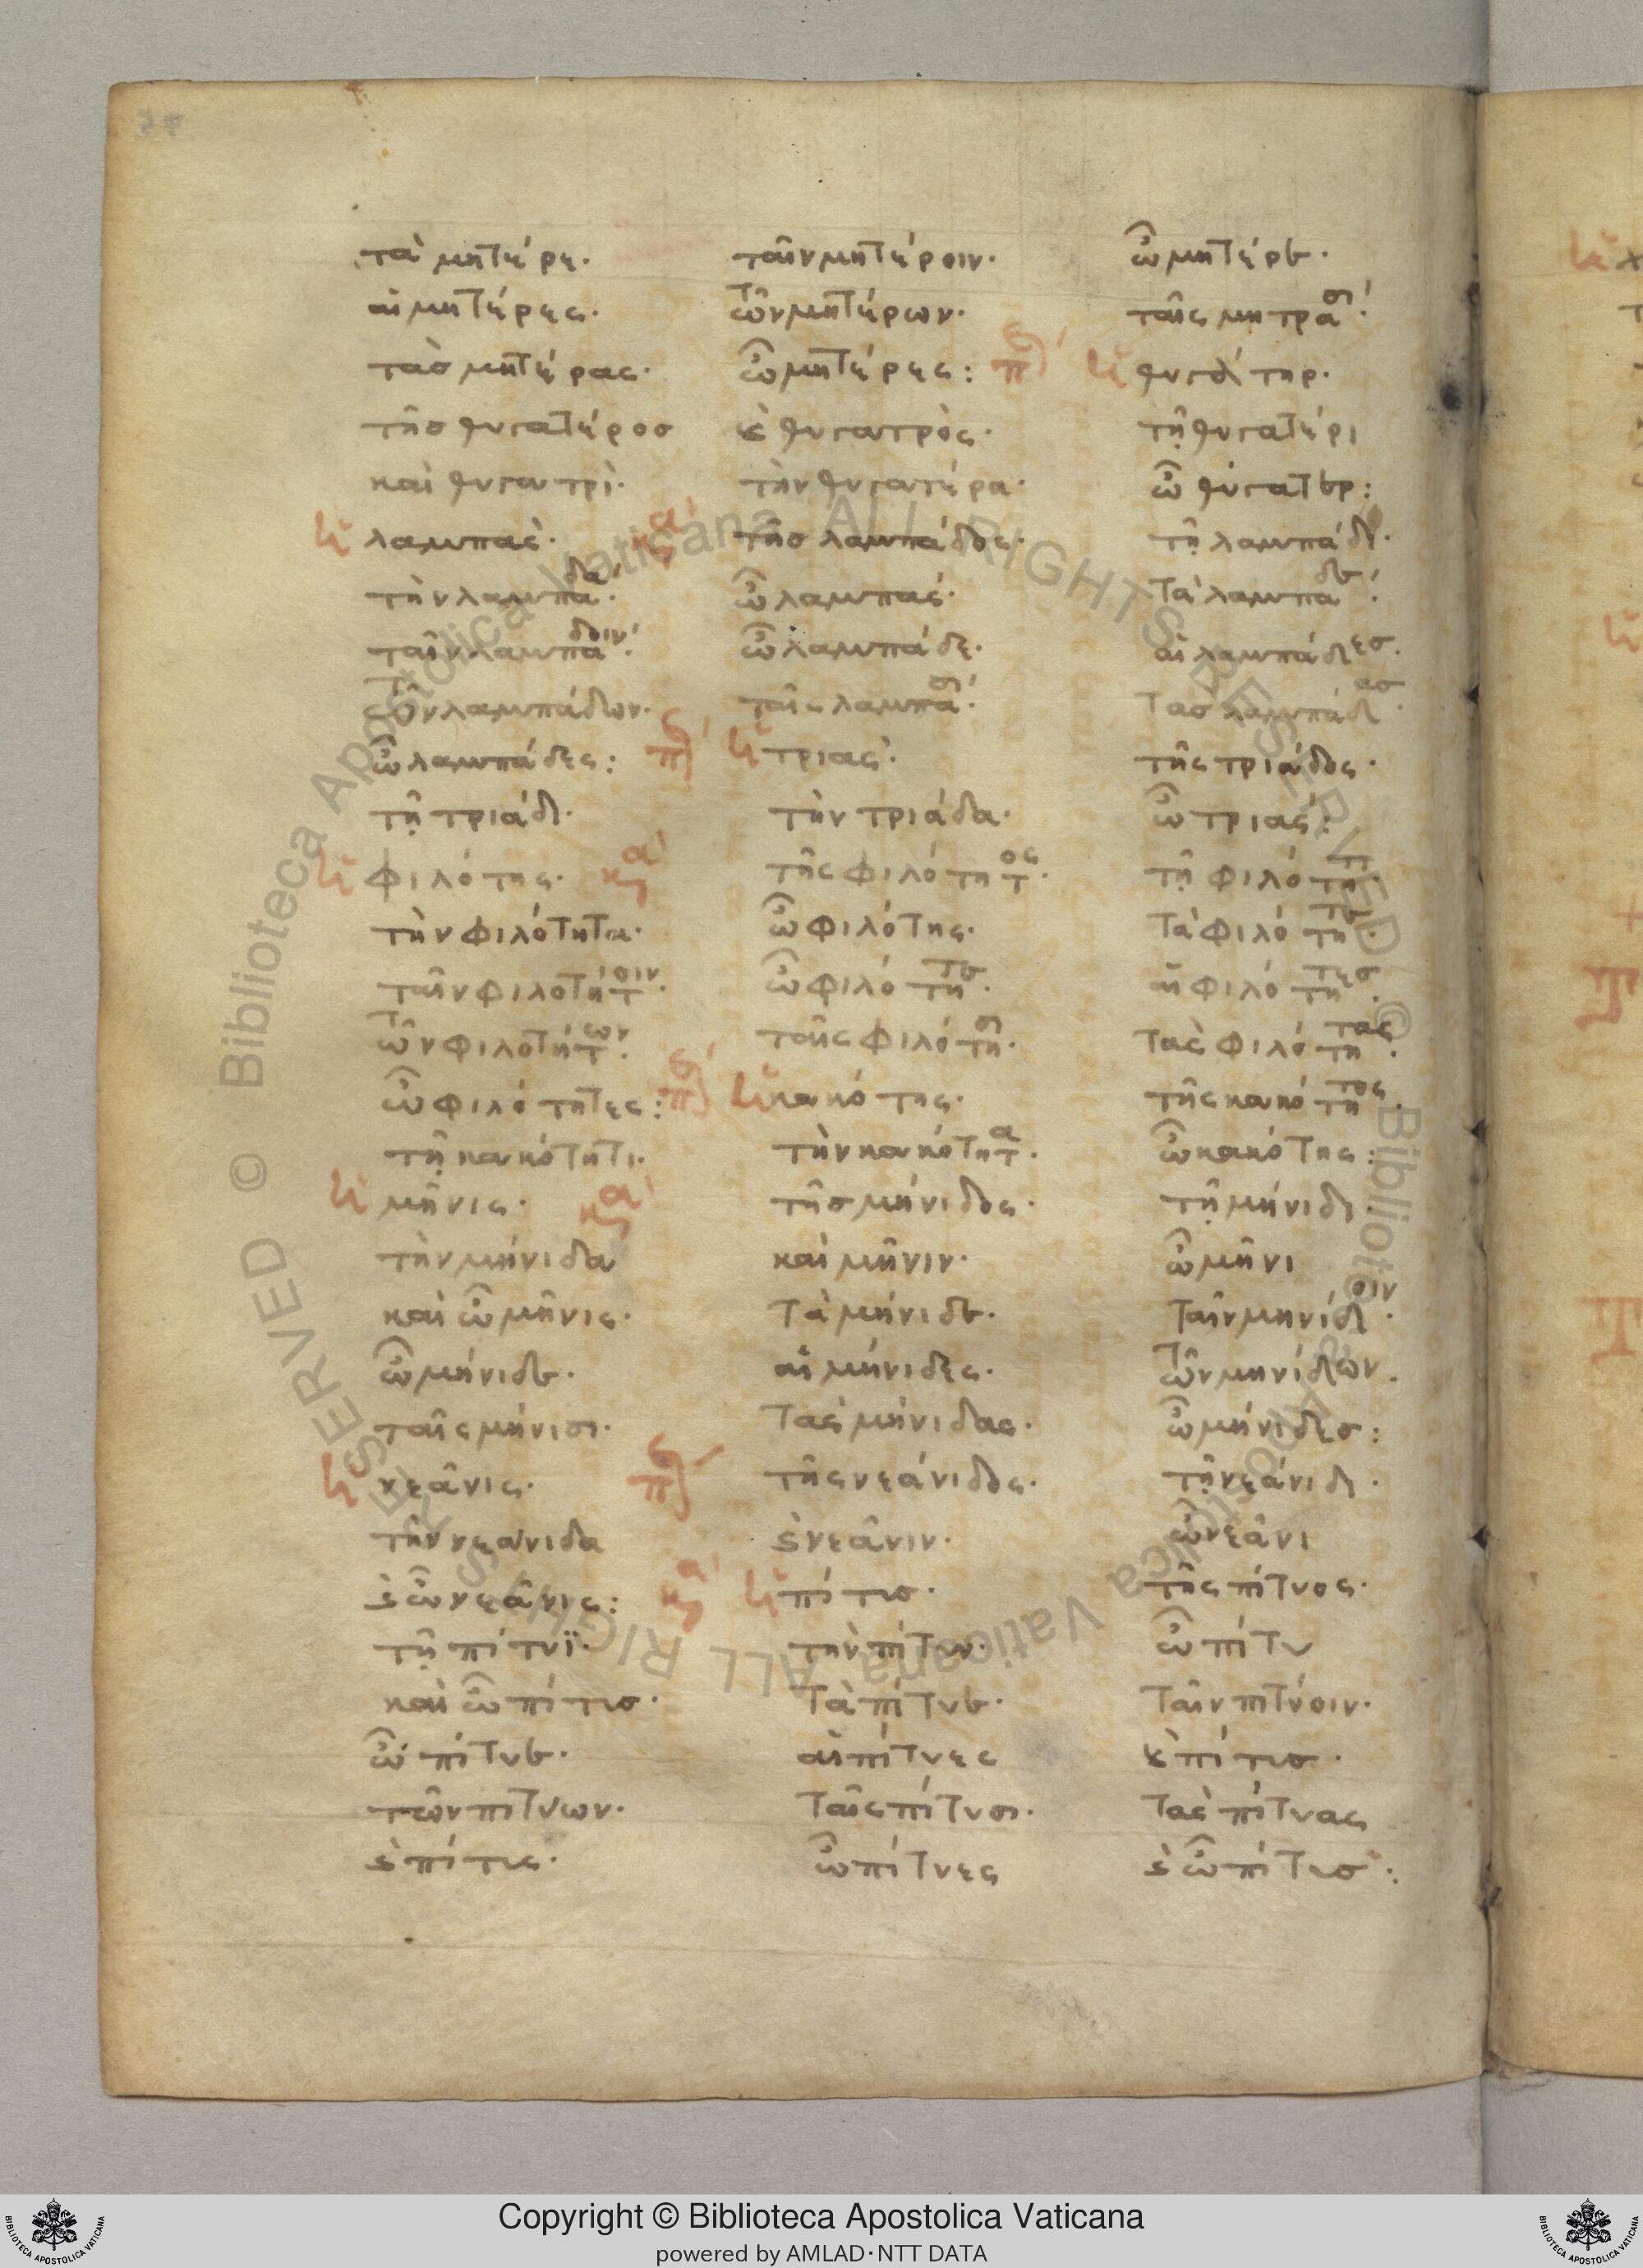 τὰ μητέρε· ταῖν μητέροιν· ὦ μητέρε·
αἱ μητέρες· τῶν μητέρων· ταῖς μητράσι·
τὰσ μητέρας· ὦ μητέρες: θυγάτηρ·
τῆσ θυγατέροσ καὶ θυγατρὸς· τῇ θυγατέρι
καὶ θυγατρὶ· τὴν θυγατέρα· ὦ θύγατερ:
λαμπὰς· τῆσ λαμπάδος· τῇ λαμπάδι·
τὴν λαμπάδα· ὦ λαμπάς· τὰ λαμπάδε·
ταῖν λαμπάδοιν· ὦ λαμπάδε· αἱ λαμπάδεσ·
τῶν λαμπάδων· ταῖς λαμπάσι· τασ λαμπάδασ·
ὦ λαμπάδες: τριὰς· τῆς τριάδος·
τῇ τριάδι· τὴν τριάδα· ὦ τριάς:
φιλότης· τῆς φιλότητος· τῇ φιλότητι·
τὴν φιλότητα· ὦ φιλότης· τὰ φιλότητε·
ταῖν φιλοτήτοιν· ὦ φιλότητε· αἱ φιλότητεσ·
τῶν φιλοτήτων· ταῖς φιλότησι· τὰς φιλότητας·
ὦ φιλότητες: κακότης· τῆς κακότητος·
τῇ κακότητι· τὴν κακότητα· ὦ κακότης:
μῆνις· τῆσ μήνιδος· τῇ μήνιδι
τὴν μήνιδα καὶ μῆνιν· ὦ μῆνι
καὶ ὦ μῆνις· τὰ μήνιδε· ταῖν μηνίδοιν·
ὦ μήνιδε· αἱ μήνιδες· τῶν μηνίδων·
ταῖς μήνισι· τὰς μήνιδας· ὦ μήνιδεσ:
νεᾶνις· τῆς νεάνιδος· τῇ νεάνιδι·
τὴν νεάνιδα καὶ νεᾶνιν· ὦ νεᾶνι
καὶ ὦ νεᾶνις: πίτυσ· τῆς πίτυος·
τῇ πίτυϊ· τὴν πίτυν· ὦ πίτυ
καὶ ὦ πίτυσ· τὰ πίτυε· ταῖν πιτύοιν·
ὦ πίτυε· αἱ πίτυες καὶ πίτυσ·
τῶν πιτύων· ταῖς πίτυσι· τὰς πίτυας
καὶ πίτυς· ὦ πίτυες καὶ ὦ πίτυσ:
Copyright © Biblioteca Apostolica Vaticana
powered by AMLAD·NTT DATA